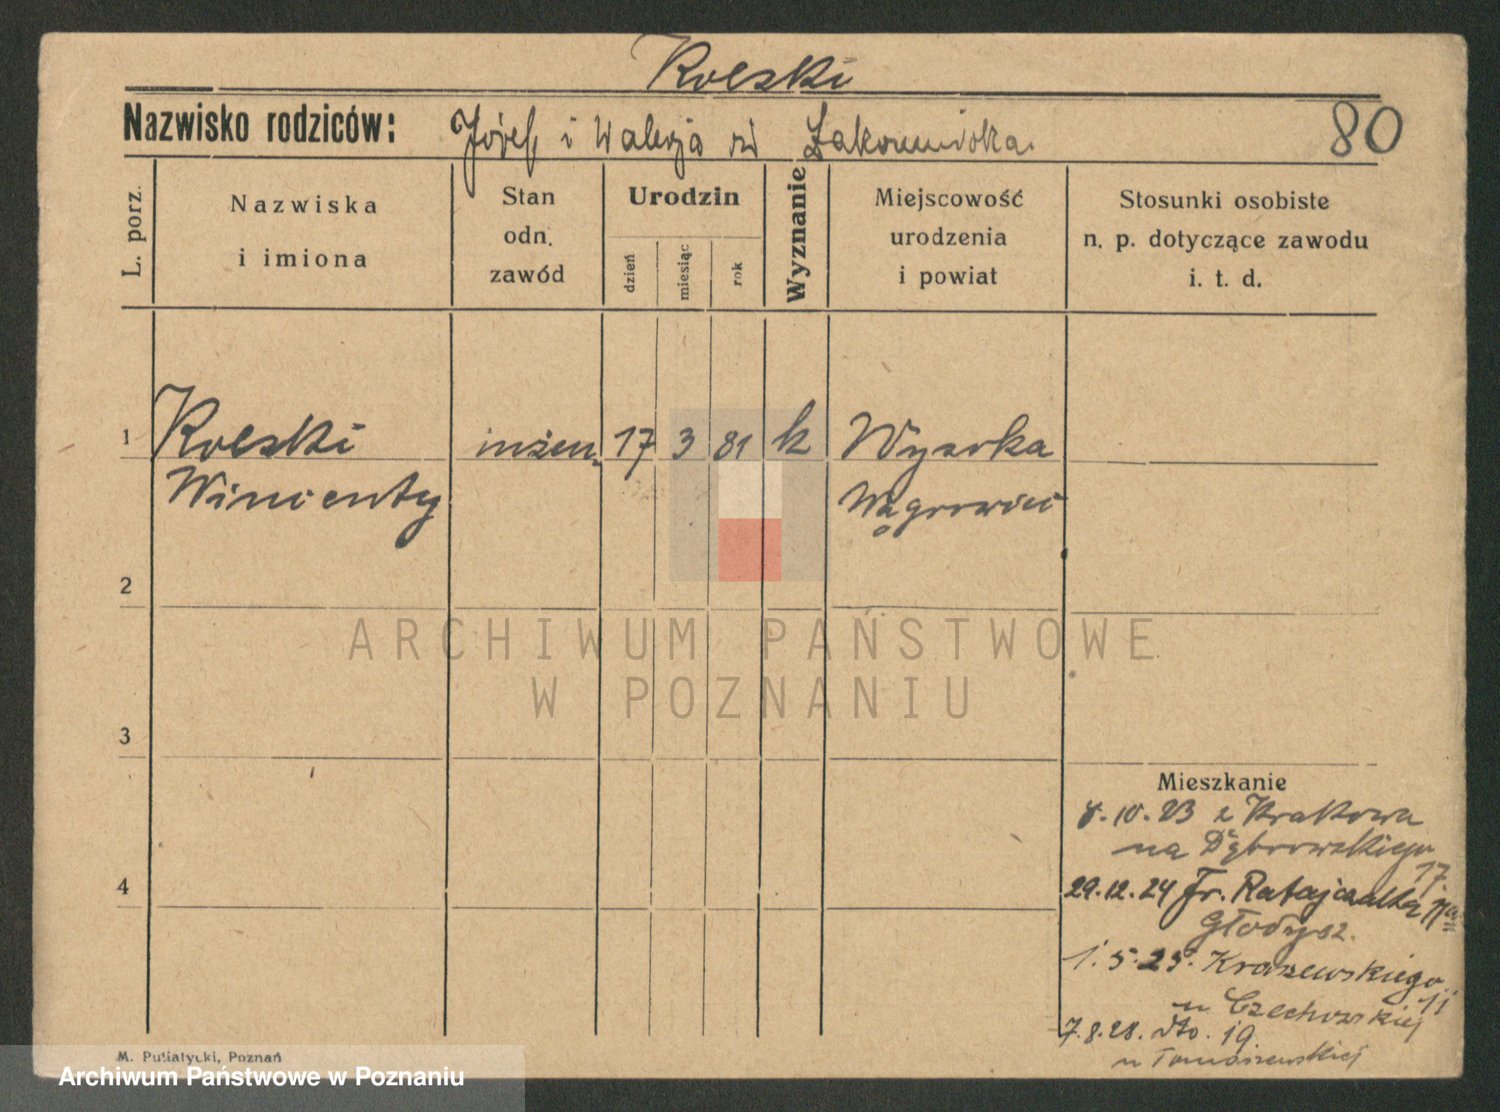 Rolski
Nazwisko rodziców: Józef i Walerja
80
L. porz.
Nazwiska
i imiona
Stan
odn.
zawód
Urodzin
dzień
miesiąc
rok
Wyznanie
Miejscowość
urodzenia
i powiat
Stosunki osobiste
n. p. dotyczące zawodu
i. t. d.
1 Rolski inżen. 17 3 81 k Wysoka
Wincenty Wągrowiec
2
ARCHIWUM PAŃSTWOWE
W POZNANIU
3
Mieszkanie
8.10.23 z Krakowa
na Dąbrowskiego
17
4
29.12.24 Fr. Ratajczaka 11a
Głodysz.
1.5.25. Kraszewskiego
11
u Czechowskiej
7.8.28. dto. 19.
u Tomaszewskiej
M. Putiatycki, Poznań
Archiwum Państwowe w Poznaniu